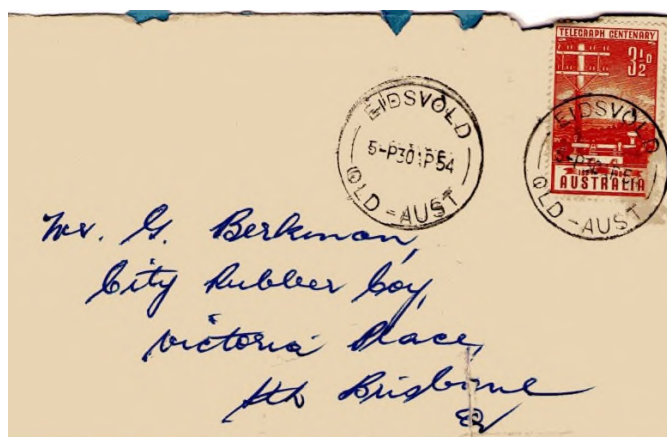 TELEGRAPH CENTENARY
3½D
AUSTRALIA
EIDSVOLD
5-P30AP54
QLD-AUST
EIDSVOLD
QLD-AUST
Mr. G. Berkman,
City Rubber Coy,
Victoria Place,
Sth Brisbane